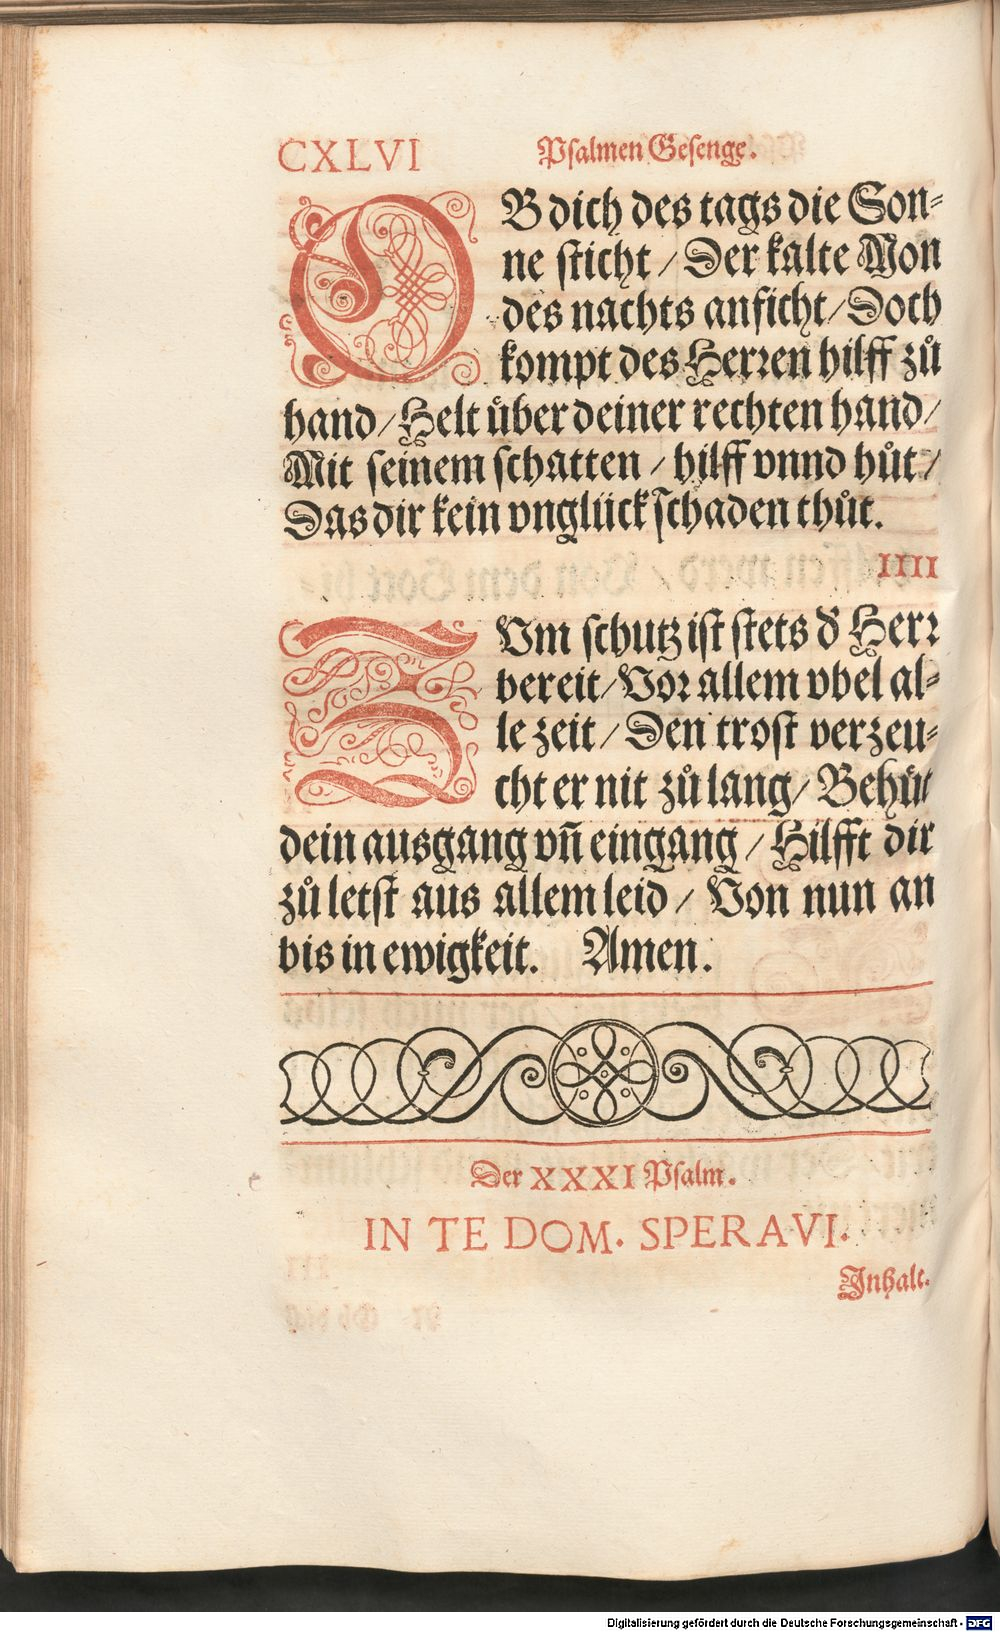 CXLVI Psalmen Gesenge.
OB dich des tags die Son⸗
ne sticht / Der kalte Mon
des nachts anficht / Doch
kompt des Herren hilff zů
hand / Helt über deiner rechten hand /
Mit seinem schatten / hilff vnnd hůt /
Das dir kein vnglück schaden thůt.
IIII
ZVm schutz ist stets d̛ Herr
bereit / Vor allem vbel al⸗
le zeit / Den trost verzeu⸗
cht er nit zů lang / Behůt
dein ausgang vñ eingang / Hilfft dir
zů letst aus allem leid / Von nun an
bis in ewigkeit. Amen.
Der XXXI Psalm.
IN TE DOM. SPERAVI.
Inhalt.
Digitalisierung gefördert durch die Deutsche Forschungsgemeinschaft - DFG